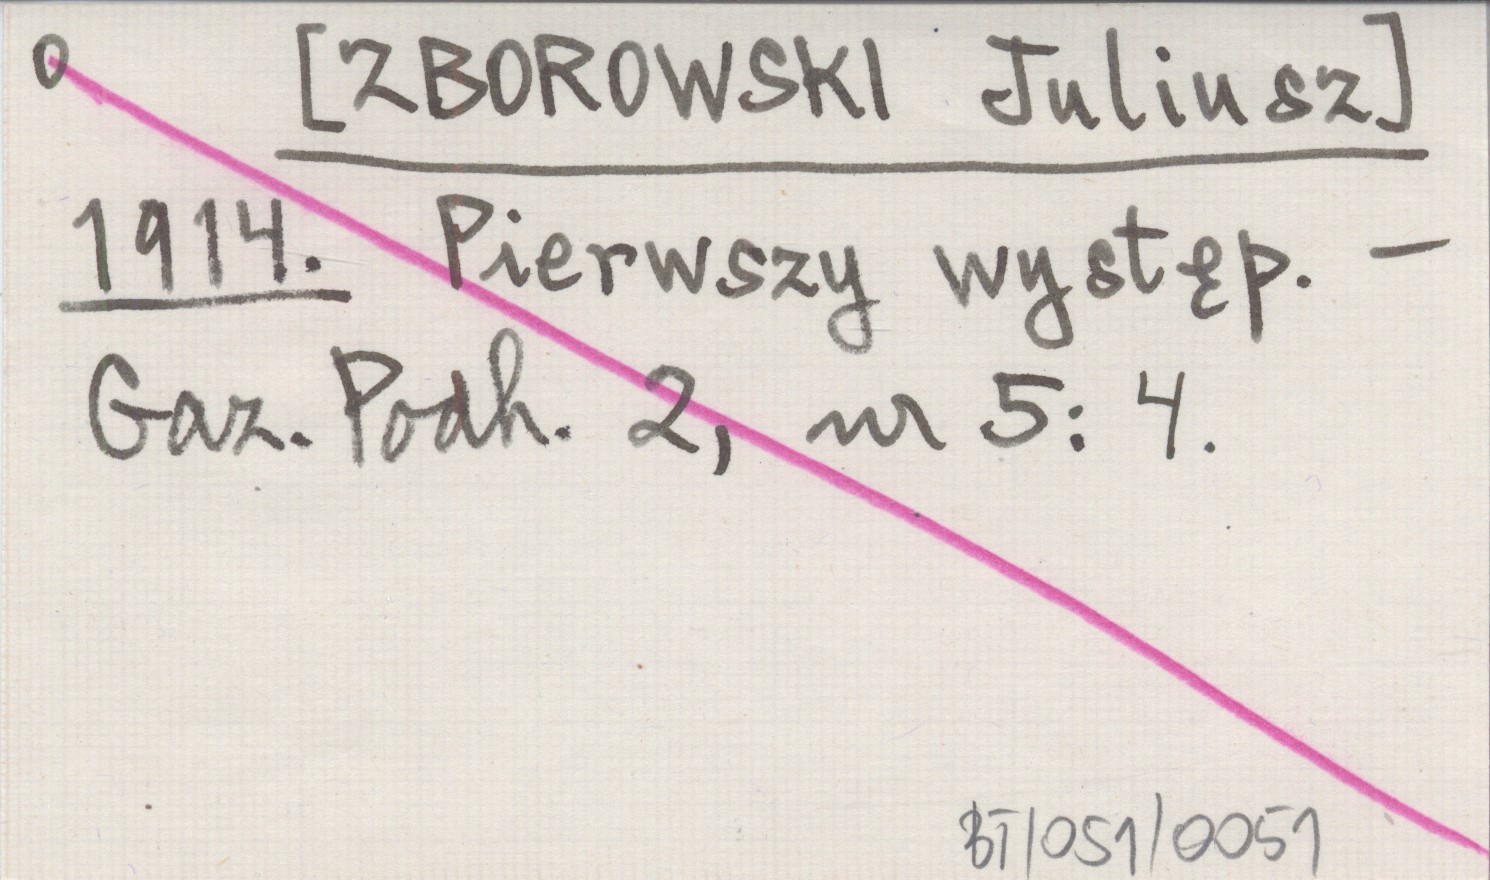 0 [ZBOROWSKI Juliusz]
1914. Pierwszy występ. –
Gaz. Podh. 2, nr 5: 4.
BT/051/0051